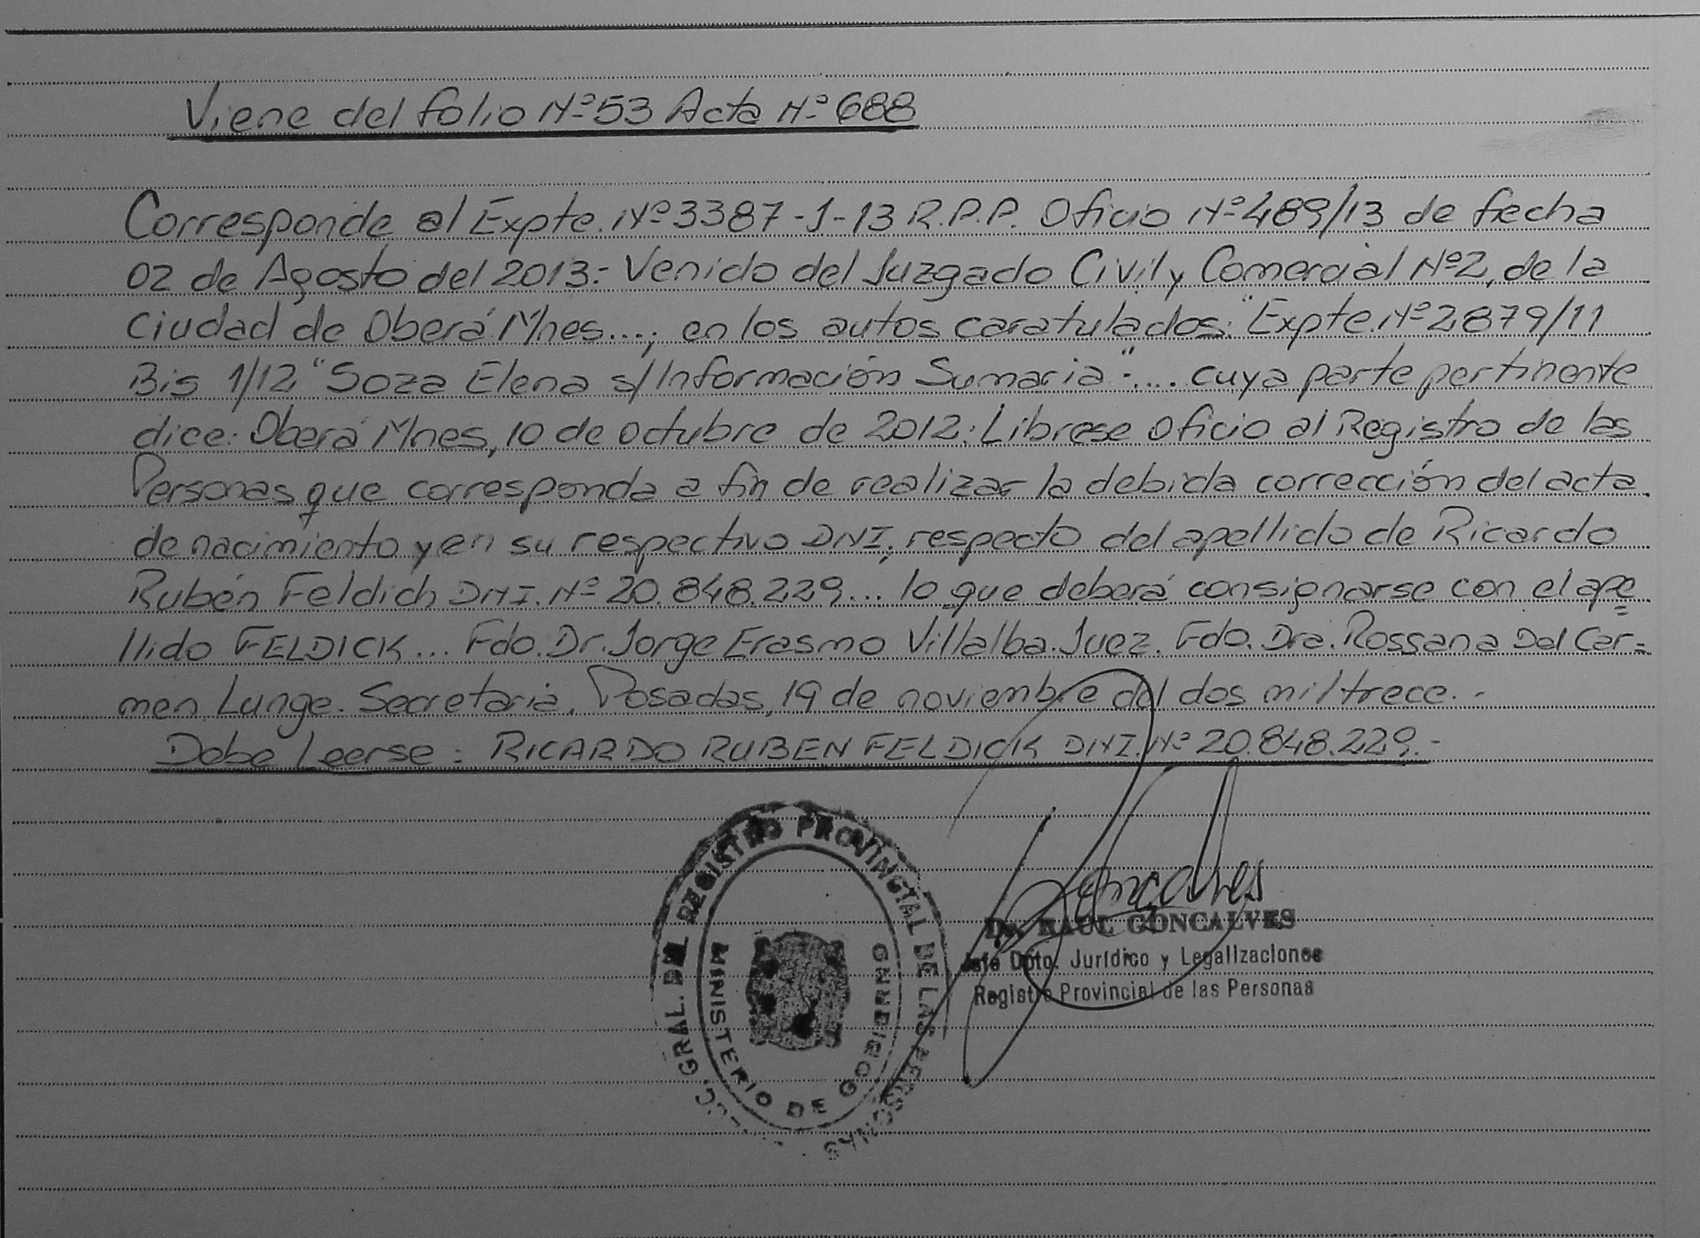 Viene del folio Nº53 Acta Nº 688
Corresponde al Expte. Nº3387-J-13 R.P.P. Oficio Nº489/13 de fecha
02 de Agosto del 2013.- Venido del Juzgado Civil y Comercial Nº2, de la
Ciudad de Oberá Mnes...; en los autos caratulados: "Expte. Nº2879/11
Bis 1/12 "Soza Elena s/Información Sumaria".... cuya parte pertinente
dice: Oberá Mnes, 10 de octubre de 2012.: Librese oficio al Registro de las
Personas que corresponda a fin de realizar la debida corrección del acta
de nacimiento y en su respectivo DNI, respecto del apellido de Ricardo
Rubén Feldich DNI. Nº 20.848.229... lo que deberá consignarse con el ape=
llido FELDICK... Fdo. Dr. Jorge Erasmo Villalba. Juez. Fdo. Dra. Rossana Del Car=
men Lunge. Secretaria. Posadas, 19 de noviembre del dos mil trece.-
Debe Leerse: RICARDO RUBEN FELDICK DNI. Nº 20.848.229.-
GRAL. DEL REGISTRO PROVINCIAL DE LAS PERSONAS
MINISTERIO DE GOBIERNO
Goncalves
Dr. RAUL GONCALVES
Jefe Dpto. Jurídico y Legalizaciones
Registro Provincial de las Personas